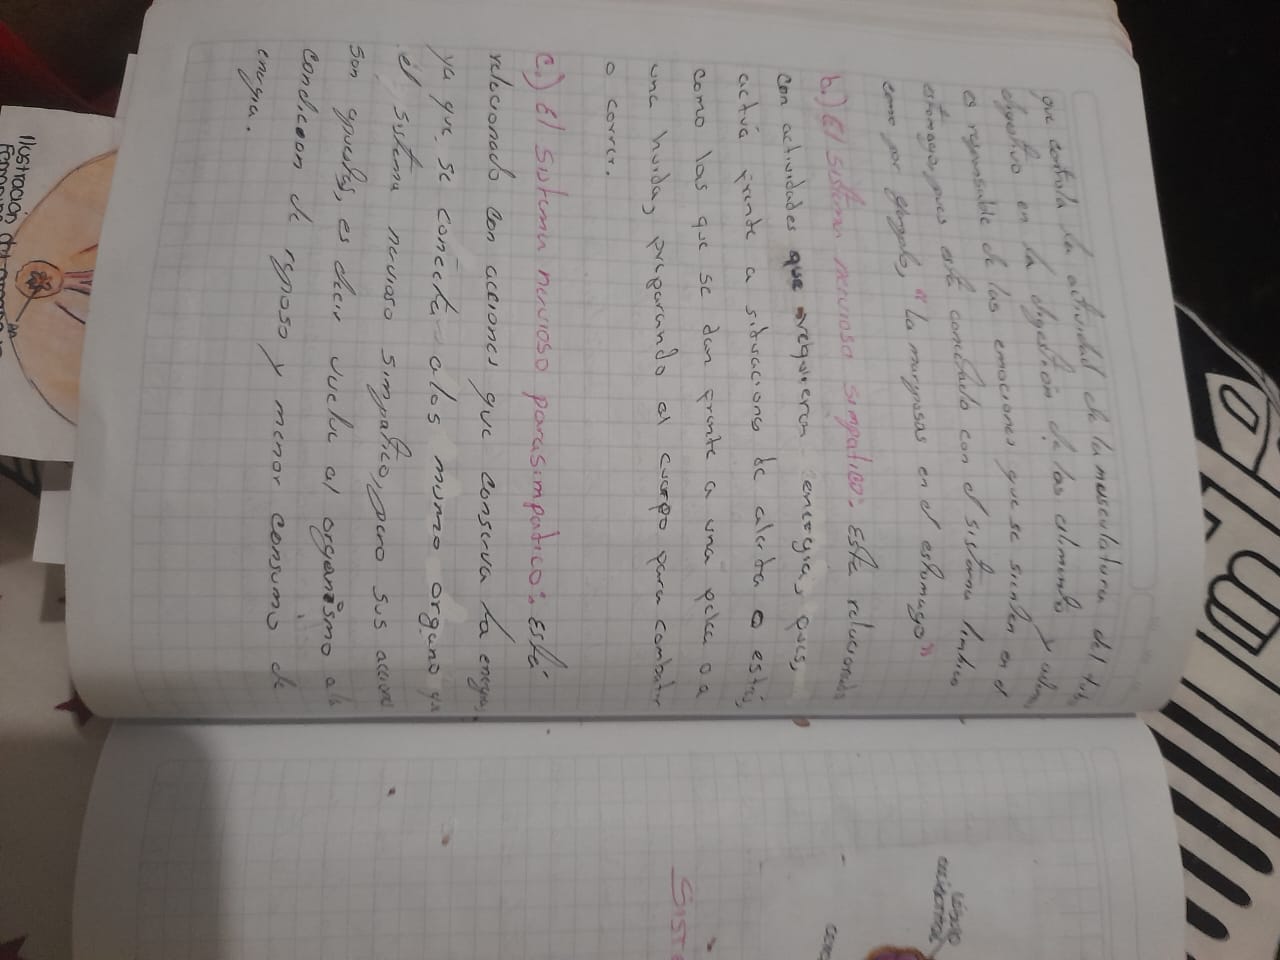 que controla la actividad de la musculatura del tubo
digestivo en la digestión de los alimento y
es responsable de las emociones que se sienten en el
estomago, pues está conectado con el sistema limbico
como por ejemplo, "la mariposas en el estomago"
b.) El sistema nervioso simpatico: Esta relacionado
con actividades que requieren energia, pues,
activa frente a situaciones de alerta o estrés,
como las que se dan frente a una pelea o a
una huida, preparando al cuerpo para combatir
o correr.
c.) El sistema nervioso parasimpatico: Está
relacionado con acciones que conserva la energia,
ya que se conecta a los mismo organo que
el sistema nervioso simpatico, pero sus accione
son opuestas, es decir vuelve al organismo a la
condicion de reposo y menor consumo de
energia.
Ilustración
Sist